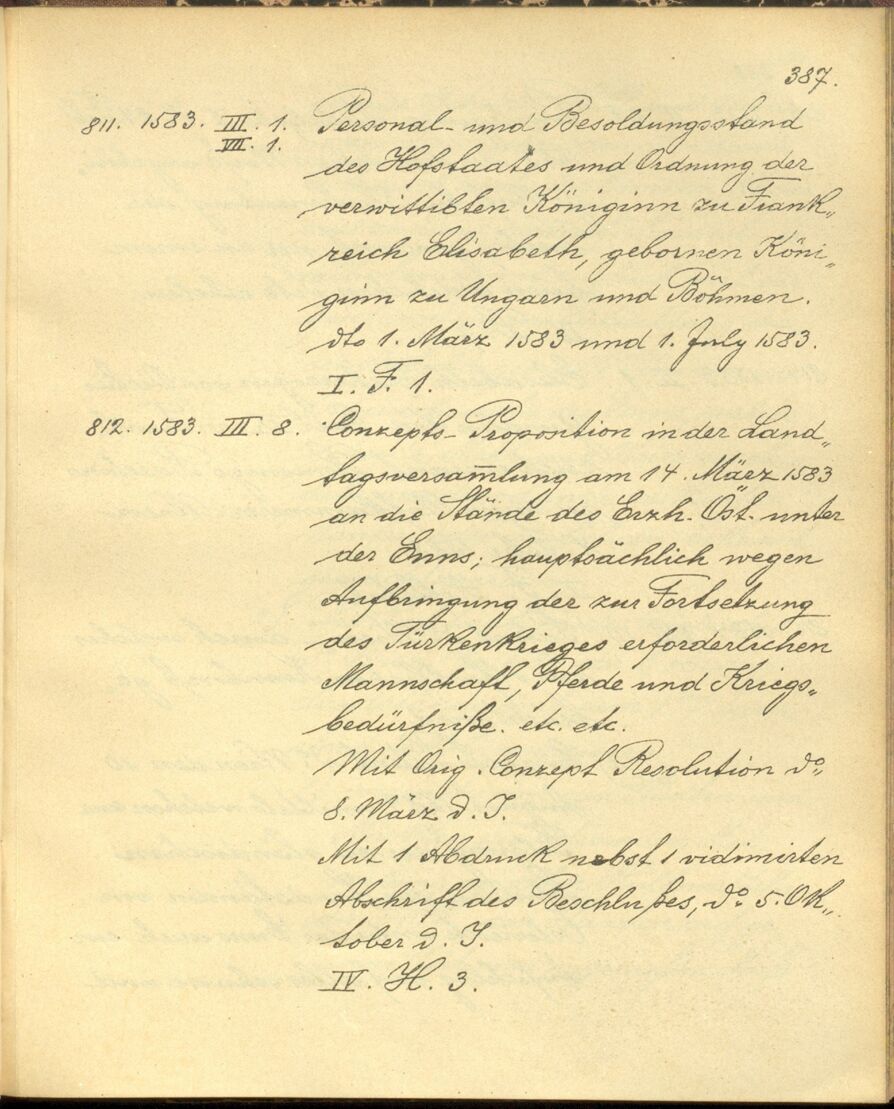 387.
811. 1583. III. 1. Personal- und Besoldungsstand
VII. 1.
des Hofstaates und Ordnung der
verwittibten Königinn zu Frank„
reich Elisabeth, gebornen Köni„
ginn zu Ungarn und Böhmen.
dto 1. März 1583 und 1. July 1583.
I. F. 1.
812. 1583. III. 8. Conzepts- Proposition in der Land„
tagsversam̅lung am 14. März 1583
an die Stände des Erzh. Öst. unter
der Enns; hauptsächlich wegen
Aufbringung der zur Fortsetzung
des Türkenkrieges erforderlichen
Mannschaft, Pferde und Kriegs„
bedürfniße. etc. etc.
Mit Orig. Conzept Resolution do„
8. März d. J.
Mit 1 Abdruck nebst 1 vidimirten
Abschrift des Beschlußes, do. 5. Ok„
tober d. J.
IV. H. 3.